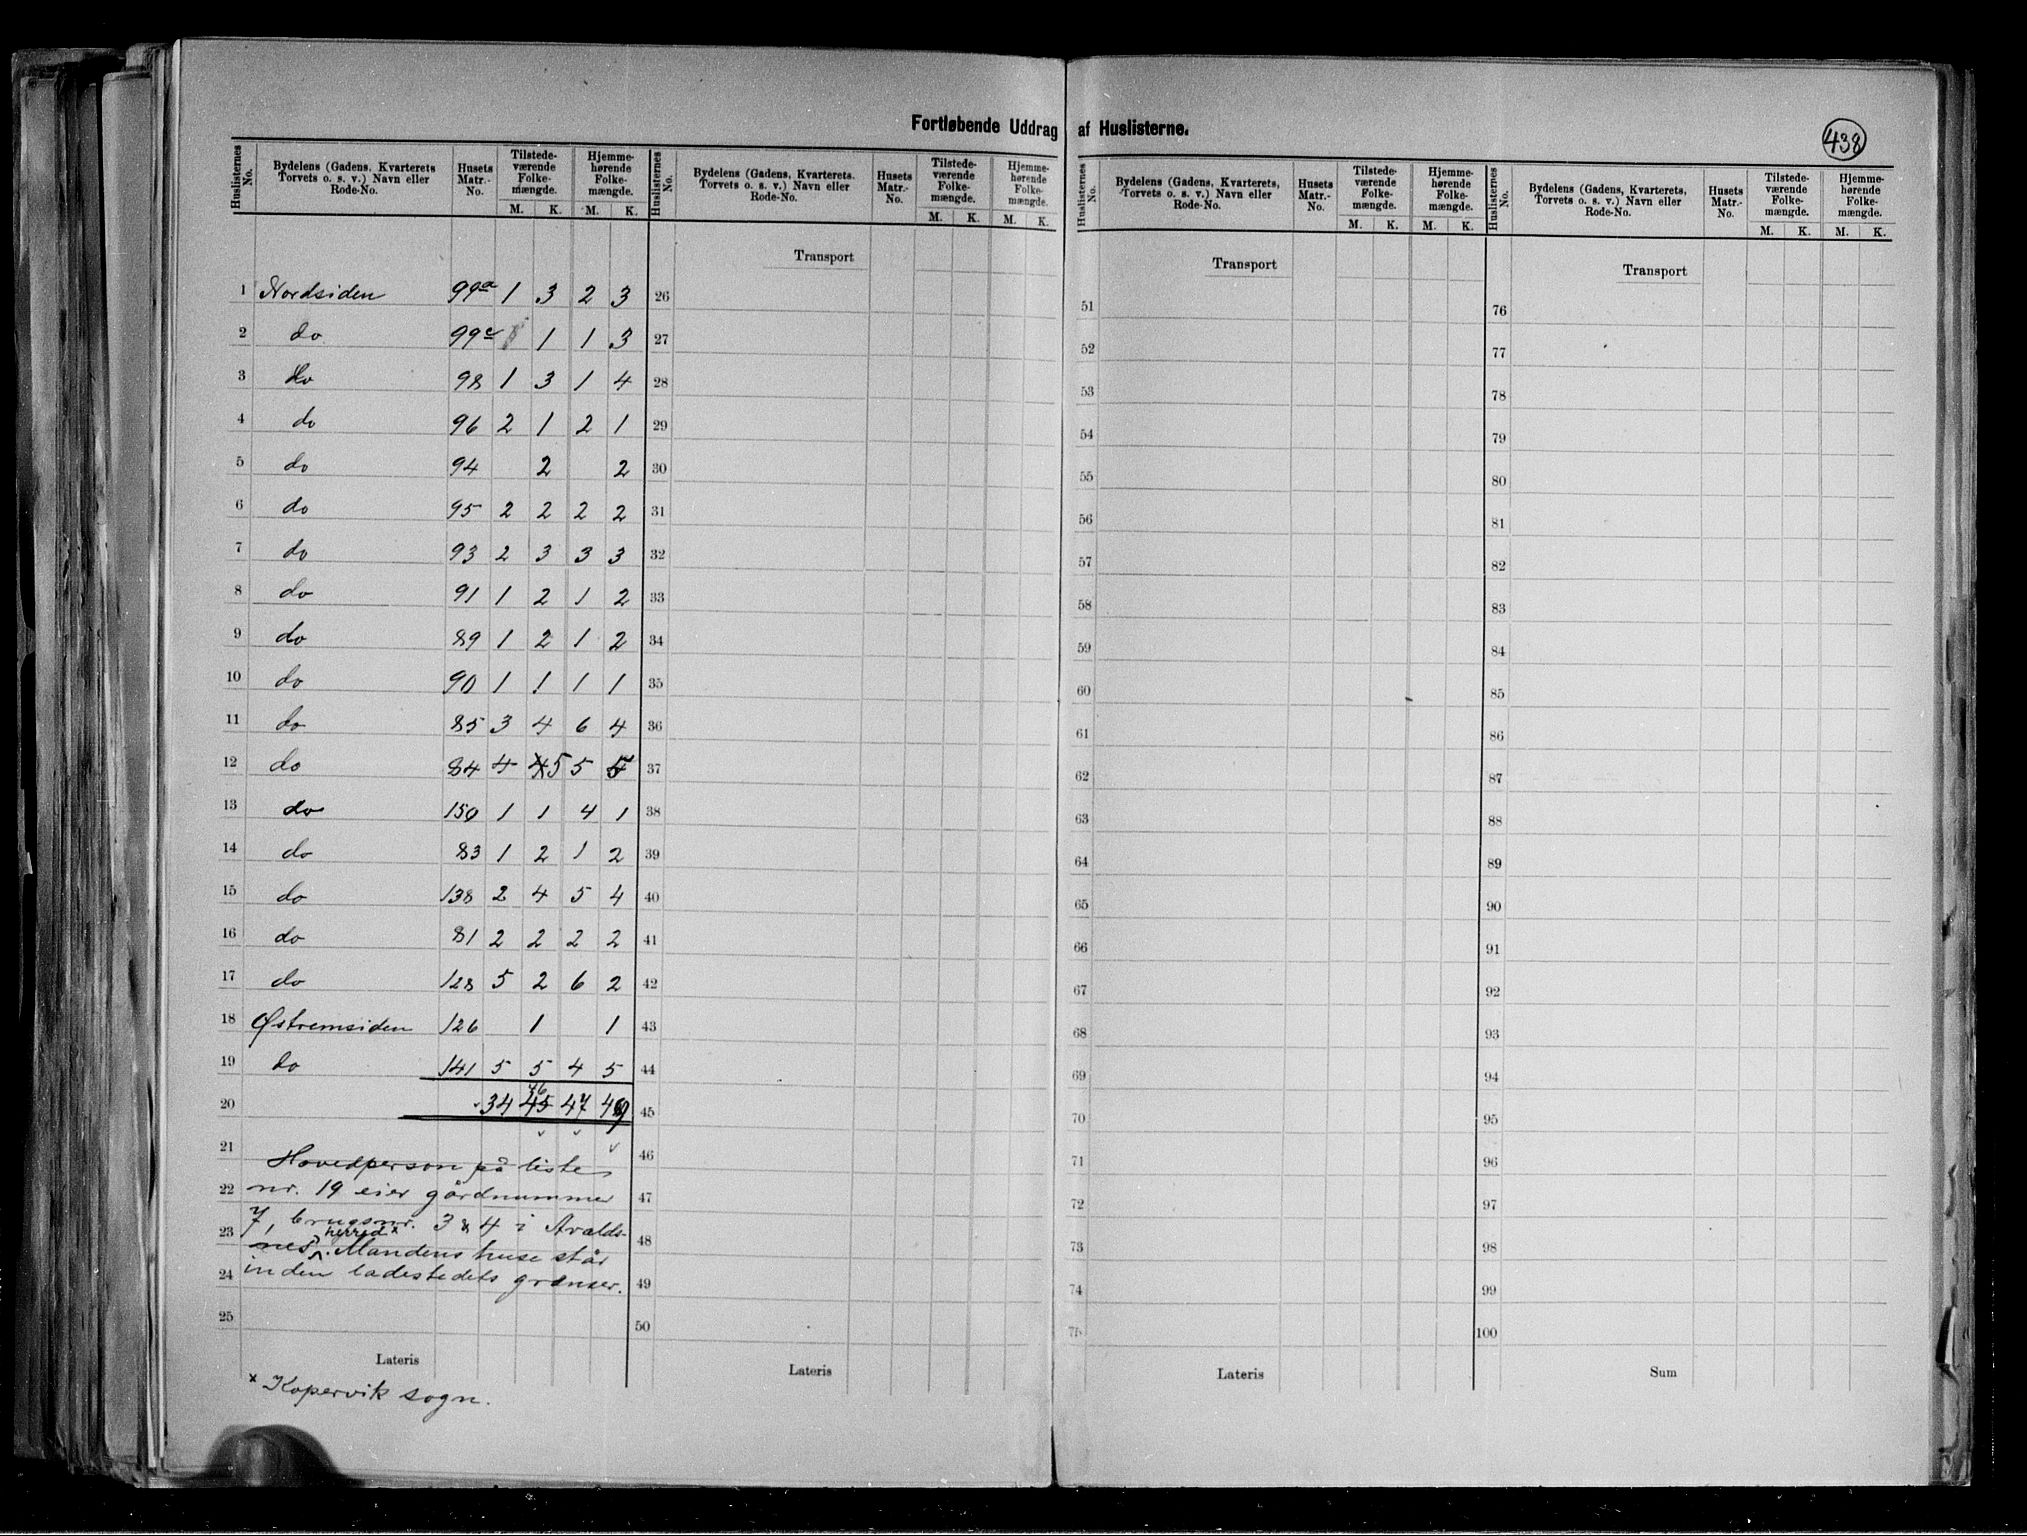 Fortløbende Uddrag af Huslisterne.
438
Huslisternes No. | Bydelens (Gadens, Kvarterets Torvets o. s. v.) Navn eller Rode-No. | Husets Matr.-No. | Tilstede-værende Folke-mængde. M. K. | Hjemme-hørende Folke-mængde. M. K.
Huslisternes No. | Bydelens (Gadens, Kvarterets, Torvets o. s. v.) Navn eller Rode-No. | Husets Matr.-No. | Tilstede-værende Folke-mængde. M. K. | Hjemme-hørende Folke-mængde. M. K.
Huslisternes No. | Bydelens (Gadens, Kvarterets, Torvets o. s. v.) Navn eller Rode-No. | Husets Matr.-No. | Tilstede-værende Folke-mængde. M. K. | Hjemme-hørende Folke-mængde. M. K.
Huslisternes No. | Bydelens (Gadens, Kvarterets, Torvets o. s. v.) Navn eller Rode-No. | Husets Matr.-No. | Tilstede-værende Folke-mængde. M. K. | Hjemme-hørende Folke-mængde. M. K.
Transport Transport Transport
1 Nordsiden 99a 1 3 2 3 26 51 76
2 do 99c 1 1 3 27 52 77
3 do 98 1 3 1 4 28 53 78
4 do 96 2 1 2 1 29 54 79
5 do 94 2 2 30 55 80
6 do 95 2 2 2 2 31 56 81
7 do 93 2 3 3 3 32 57 82
8 do 91 1 2 1 2 33 58 83
9 do 89 1 2 1 2 34 59 84
10 do 90 1 1 1 1 35 60 85
11 do 85 3 4 6 4 36 61 86
12 do 84 4 4 5 5 5 37 62 87
13 do 150 1 1 4 1 38 63 88
14 do 83 1 2 1 2 39 64 89
15 do 138 2 4 5 4 40 65 90
16 do 81 2 2 2 2 41 66 91
17 do 128 5 2 6 2 42 67 92
18 Østremsiden 126 1 1 43 68 93
19 do 141 5 5 4 5 44 69 94
46
20 34 45 47 49 45 70 95
21 Hovedperson på liste 46 71 96
22 nr. 19 eier gårdnummer 47 72 97
7, brugsnr. 3 & 4 i Avalds-
herred x
23 nes. Mandens huse står 48 73 98
24 inden ladestedets grænser. 49 74 99
25 50 75 100
Lateris Lateris Lateris Sum
x Kopervik sogn.